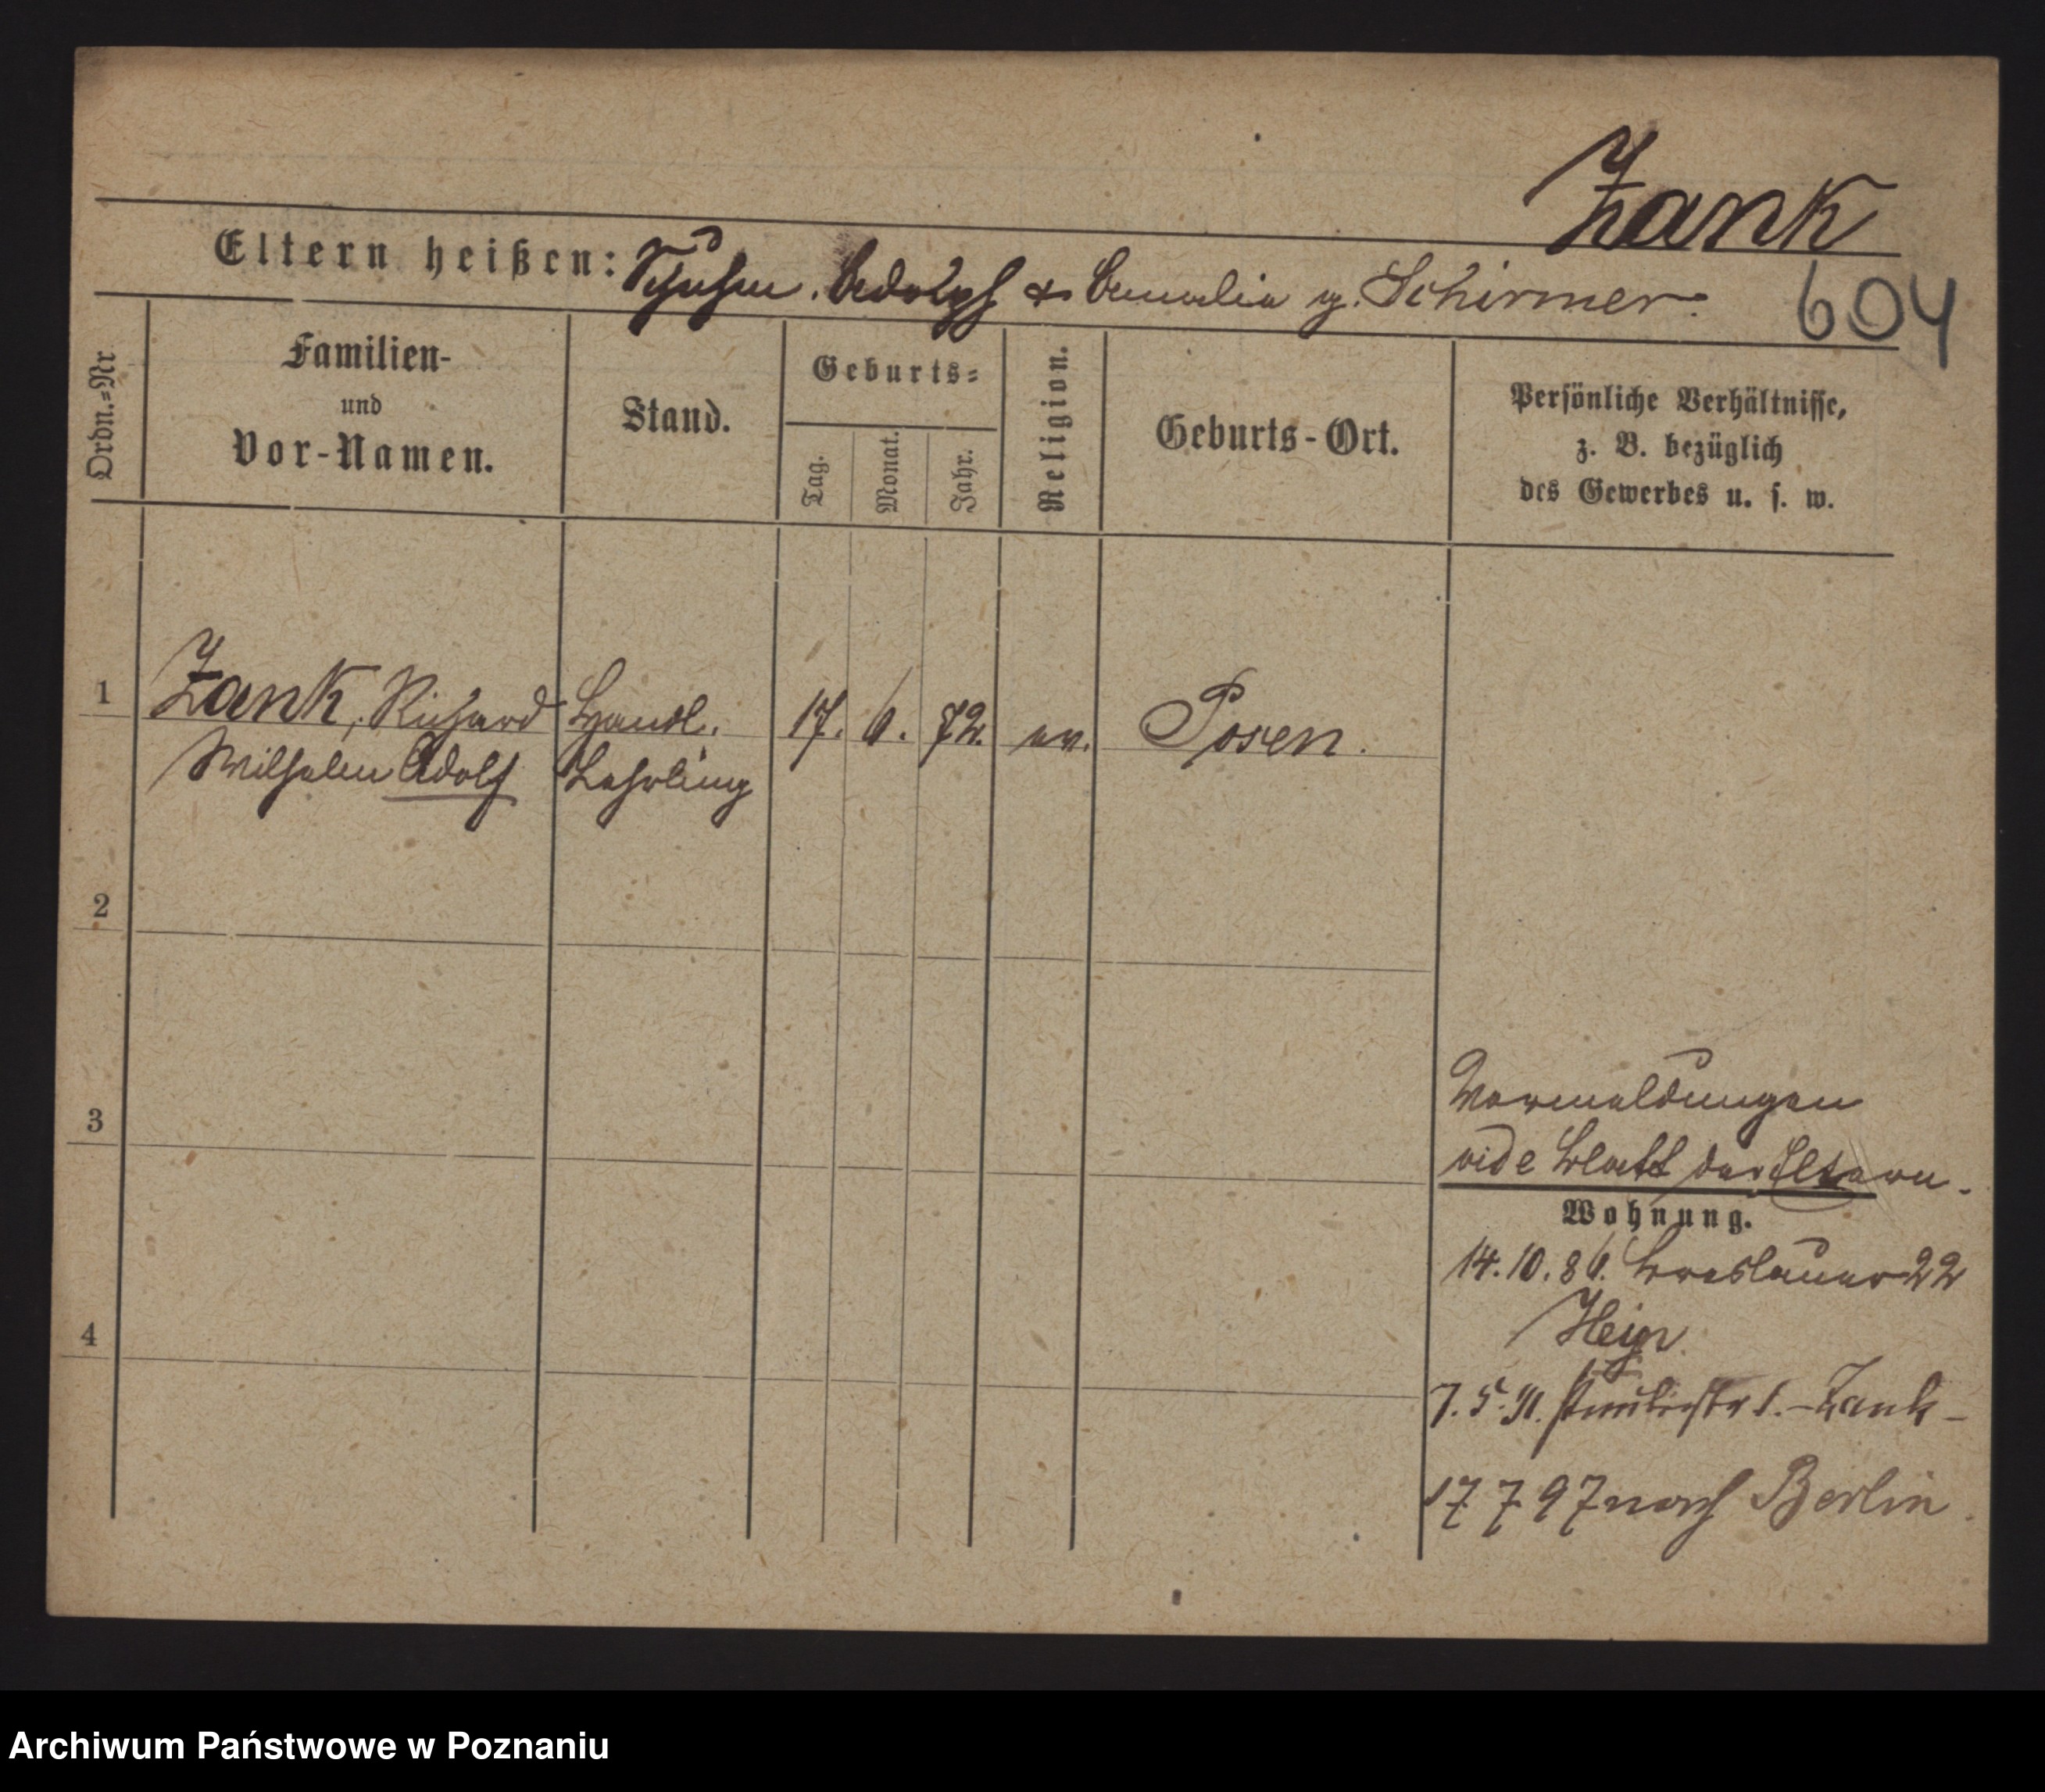 Zank
604
Eltern heißen: Schuhm. Adolph & Amalia g. Schirmer.
Ordn.=Nr
Familien-
und
Vor-Namen.
Stand.
Geburts=
Tag.
Monat.
Jahr.
Religion.
Geburts-Ort.
Persönliche Verhältnisse,
z. B. bezüglich
des Gewerbes u. s. w.
1 Zank, Richard Handl. 17. 6. 72. ev. Posen.
Wilhelm Adolf Lehrling
2
3
4
Vormeldungen
vide Blatt der Eltern.
Wohnung.
14.10.86. Breslauer 22
7.5.91. 1. - Zank -
17 7 97 nach Berlin.
Archiwum Państwowe w Poznaniu